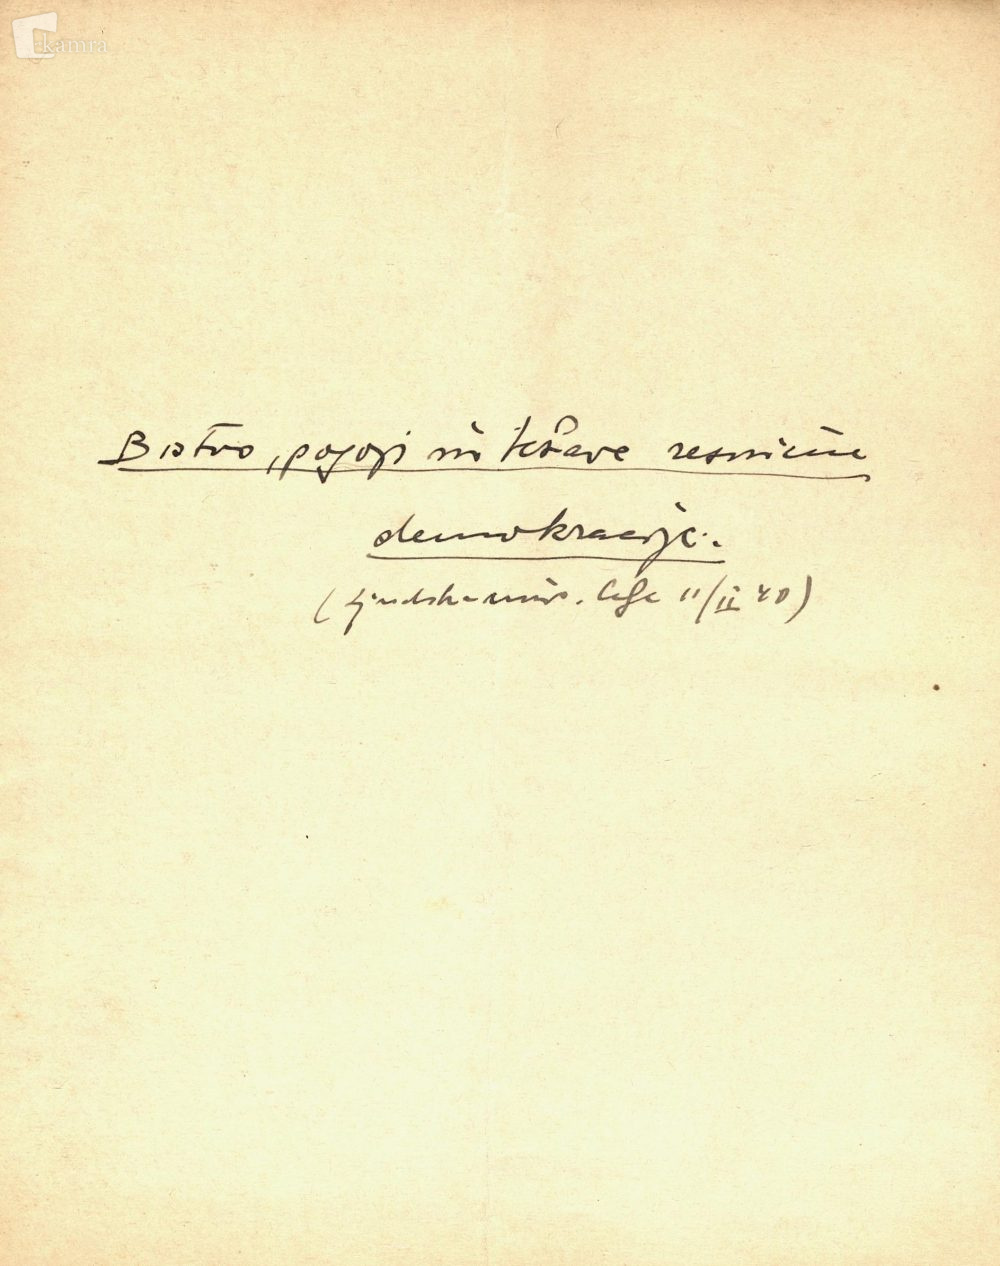 kamra
Bistvo, pogoji in težave resnične
demokracije.
(Ljudska univ. Celje 11/II 40)